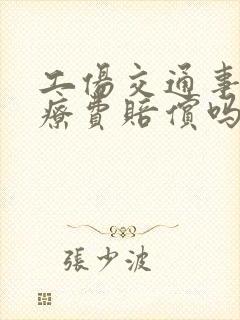 工傷交通事
療費賠償嗎
張少波